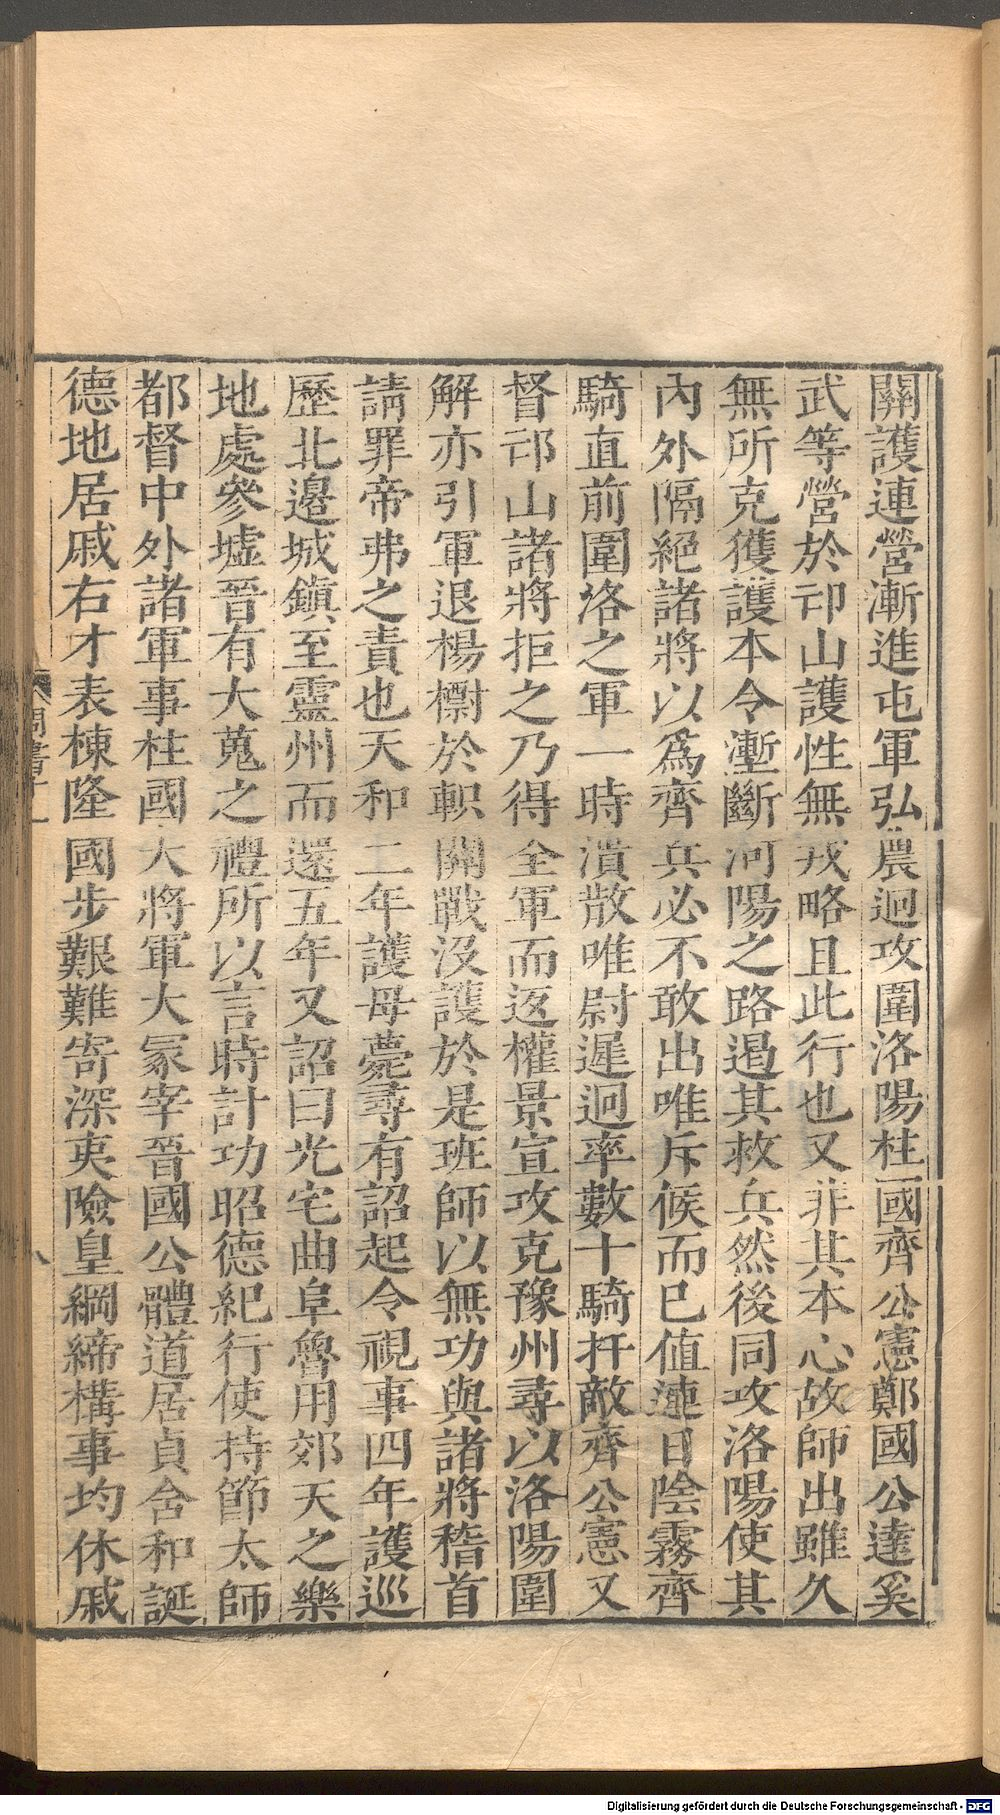 關護連營漸進屯軍弘農迥攻圍洛陽柱國齊公憲鄭國公達奚
武等營於邙山護性無戎略且此行也又非其本心故師出雖久
無所克獲護本令塹斷河陽之路遏其救兵然後同攻洛陽使其
內外隔絕諸將以爲齊兵必不敢出唯斥候而已值連日陰霧齊
騎直前圍洛之軍一時潰散唯尉遲迥率數十騎扞敵齊公憲又
督邙山諸將拒之乃得全軍而返權景宣攻克豫州尋以洛陽圍
解亦引軍退楊檦於軹關戰沒護於是班師以無功與諸將稽首
請罪帝弗之責也天和二年護母薨尋有詔起令視事四年護巡
歷北邊城鎮至靈州而還五年又詔曰光宅曲阜魯用郊天之樂
地處參墟晉有大蒐之禮所以言時計功昭德紀行使持節太師
都督中外諸軍事柱國大將軍大冢宰晉國公體道居貞含和誕
德地居戚右才表棟隆國步艱難寄深夷險皇綱締構事均休戚
周書十一
八
Digitalisierung gefördert durch die Deutsche Forschungsgemeinschaft - DFG